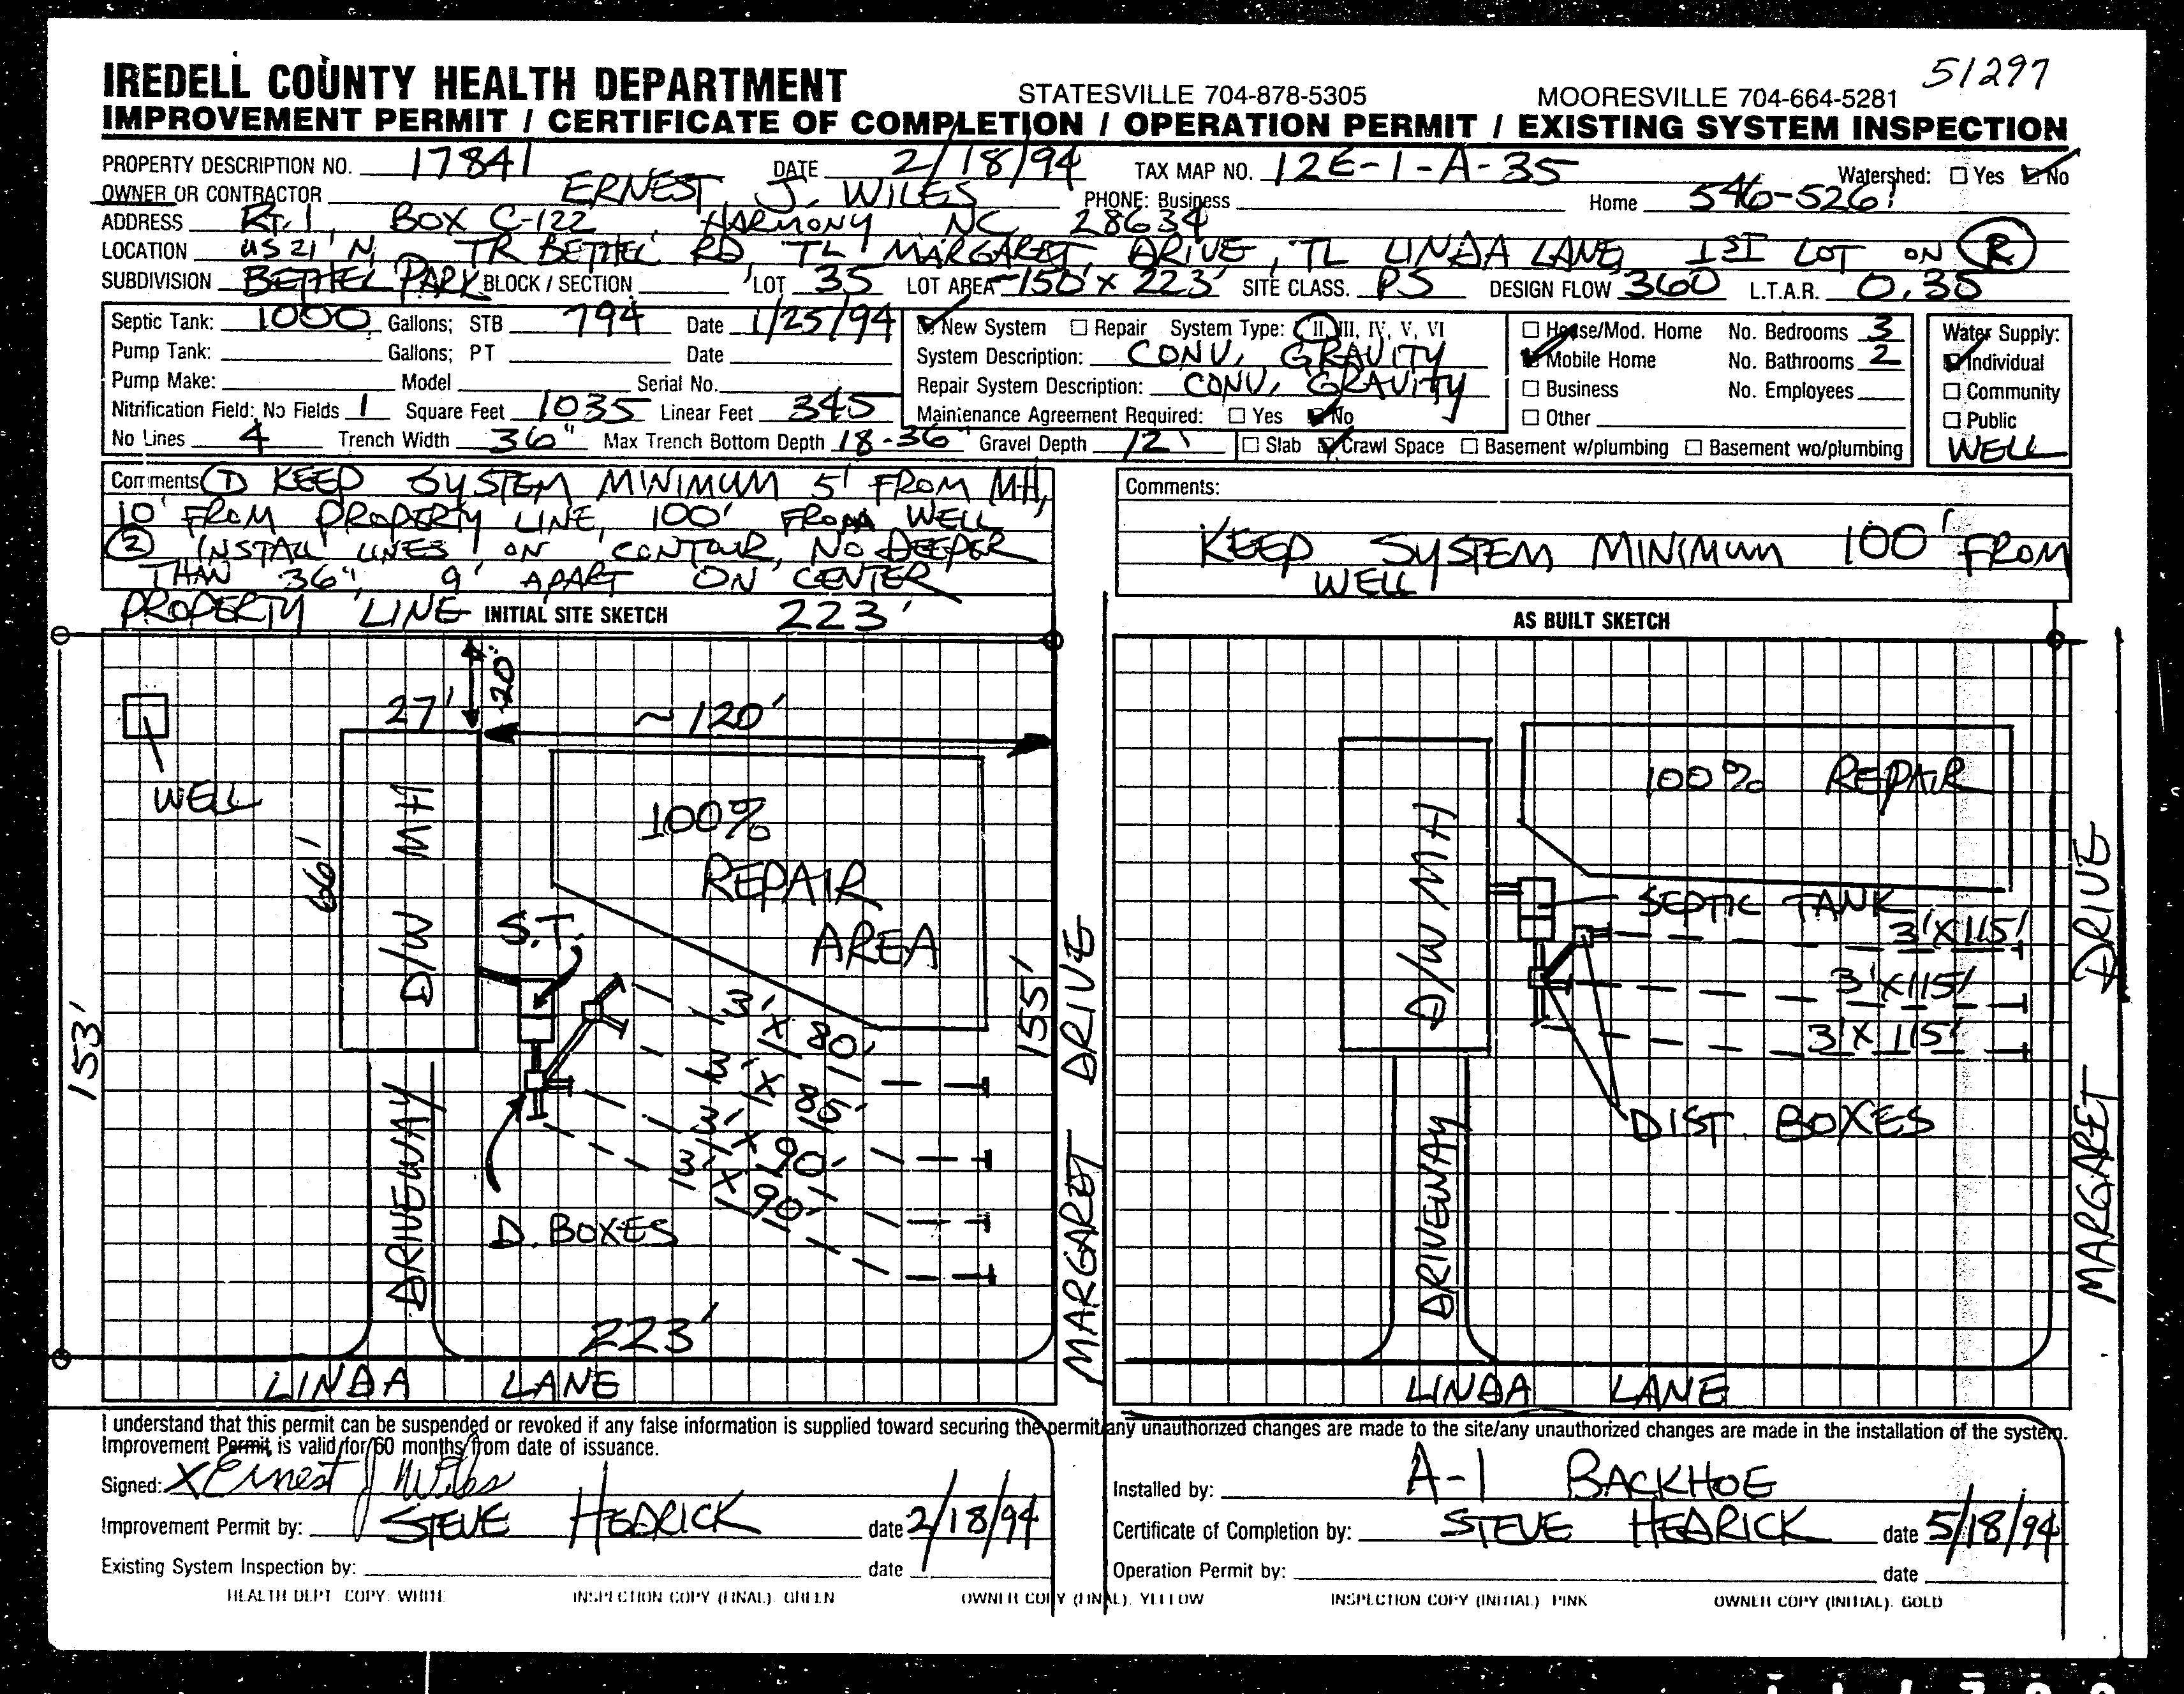 51297
IREDELL COUNTY HEALTH DEPARTMENT STATESVILLE 704-878-5305 MOORESVILLE 704-664-5281
IMPROVEMENT PERMIT / CERTIFICATE OF COMPLETION / OPERATION PERMIT / EXISTING SYSTEM INSPECTION
PROPERTY DESCRIPTION NO. 17841 DATE 2/18/94 TAX MAP NO. 12E-1-A-35 Watershed: Yes No
OWNER OR CONTRACTOR ERNEST J. WILES PHONE: Business Home 546-5261
ADDRESS RT. 1, BOX C-122, HARMONY NC 28634
LOCATION US 21 N, TR BETHEL RD, TL MARGARET DRIVE, TL LINDA LANE, 1ST LOT ON R
SUBDIVISION BETHEL PARK BLOCK / SECTION LOT 35 LOT AREA ~150' X 223' SITE CLASS. PS DESIGN FLOW 360 L.T.A.R. 0.35
Septic Tank: 1000 Gallons; STB 794 Date 1/25/94
Pump Tank: Gallons; PT Date
Pump Make: Model Serial No.
Nitrification Field: No Fields 1 Square Feet 1035 Linear Feet 345
No Lines 4 Trench Width 36" Max Trench Bottom Depth 18-36" Gravel Depth 12"
New System Repair System Type: II, III, IV, V, VI
System Description: CONV. GRAVITY
Repair System Description: CONV. GRAVITY
Maintenance Agreement Required: Yes No
Slab Crawl Space Basement w/plumbing Basement wo/plumbing
House/Mod. Home No. Bedrooms 3
Mobile Home No. Bathrooms 2
Business No. Employees
Other
Water Supply:
Individual
Community
Public
WELL
Comments: 1 KEEP SYSTEM MINIMUM 5' FROM MH,
10' FROM PROPERTY LINE, 100' FROM WELL
2 INSTALL LINES ON CONTOUR, NO DEEPER
THAN 36", 9' APART ON CENTER
Comments:
KEEP SYSTEM MINIMUM 100' FROM
WELL
PROPERTY LINE INITIAL SITE SKETCH 223'
20'
27'
~120'
WELL
66'
D/W MH
100%
REPAIR
AREA
S.T.
153'
155'
3' X 80'
3' X 85'
3' X 90'
3' X 90'
D. BOXES
DRIVEWAY
223'
LINDA LANE
MARGARET DRIVE
AS BUILT SKETCH
100% REPAIR
D/W MH
SEPTIC TANK
3' X 115'
3' X 115'
3' X 115'
DIST. BOXES
DRIVEWAY
LINDA LANE
MARGARET DRIVE
I understand that this permit can be suspended or revoked if any false information is supplied toward securing the permit/any unauthorized changes are made to the site/any unauthorized changes are made in the installation of the system.
Improvement Permit is valid for 60 months from date of issuance.
Signed: X Ernest J Wiles
Improvement Permit by: STEVE HEDRICK date 2/18/94
Existing System Inspection by: date
Installed by: A-1 BACKHOE
Certificate of Completion by: STEVE HEDRICK date 5/18/94
Operation Permit by: date
HEALTH DEPT COPY: WHITE INSPECTION COPY (FINAL): GREEN OWNER COPY (FINAL): YELLOW INSPECTION COPY (INITIAL) PINK OWNER COPY (INITIAL): GOLD